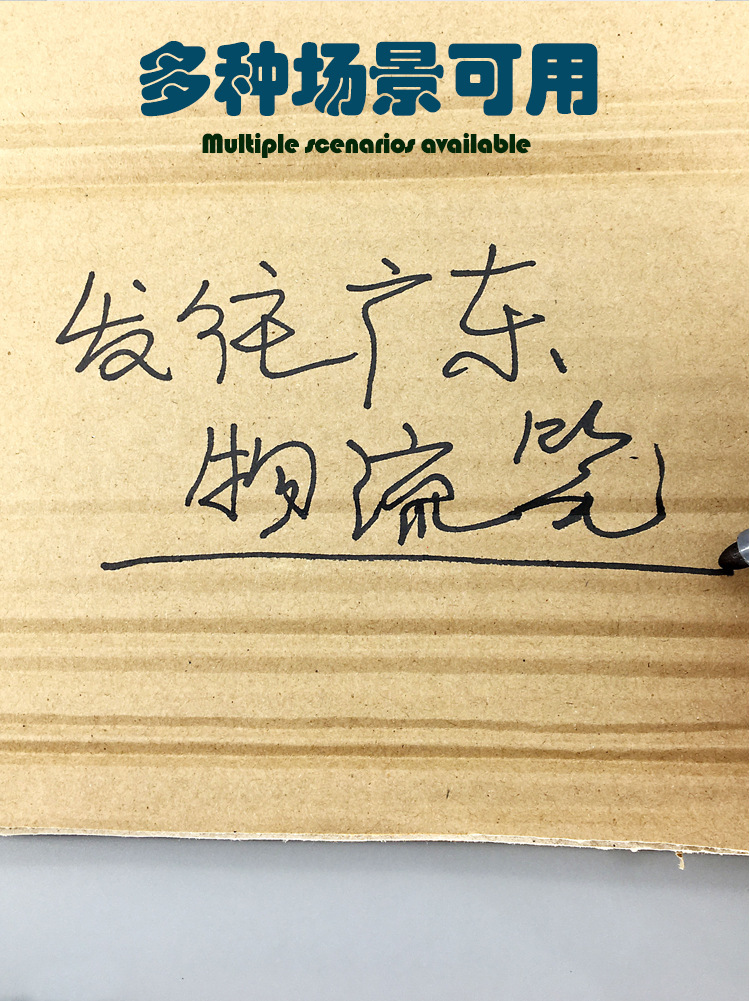 多种场景可用
Multiple scenarios available
发往广东
物流笔